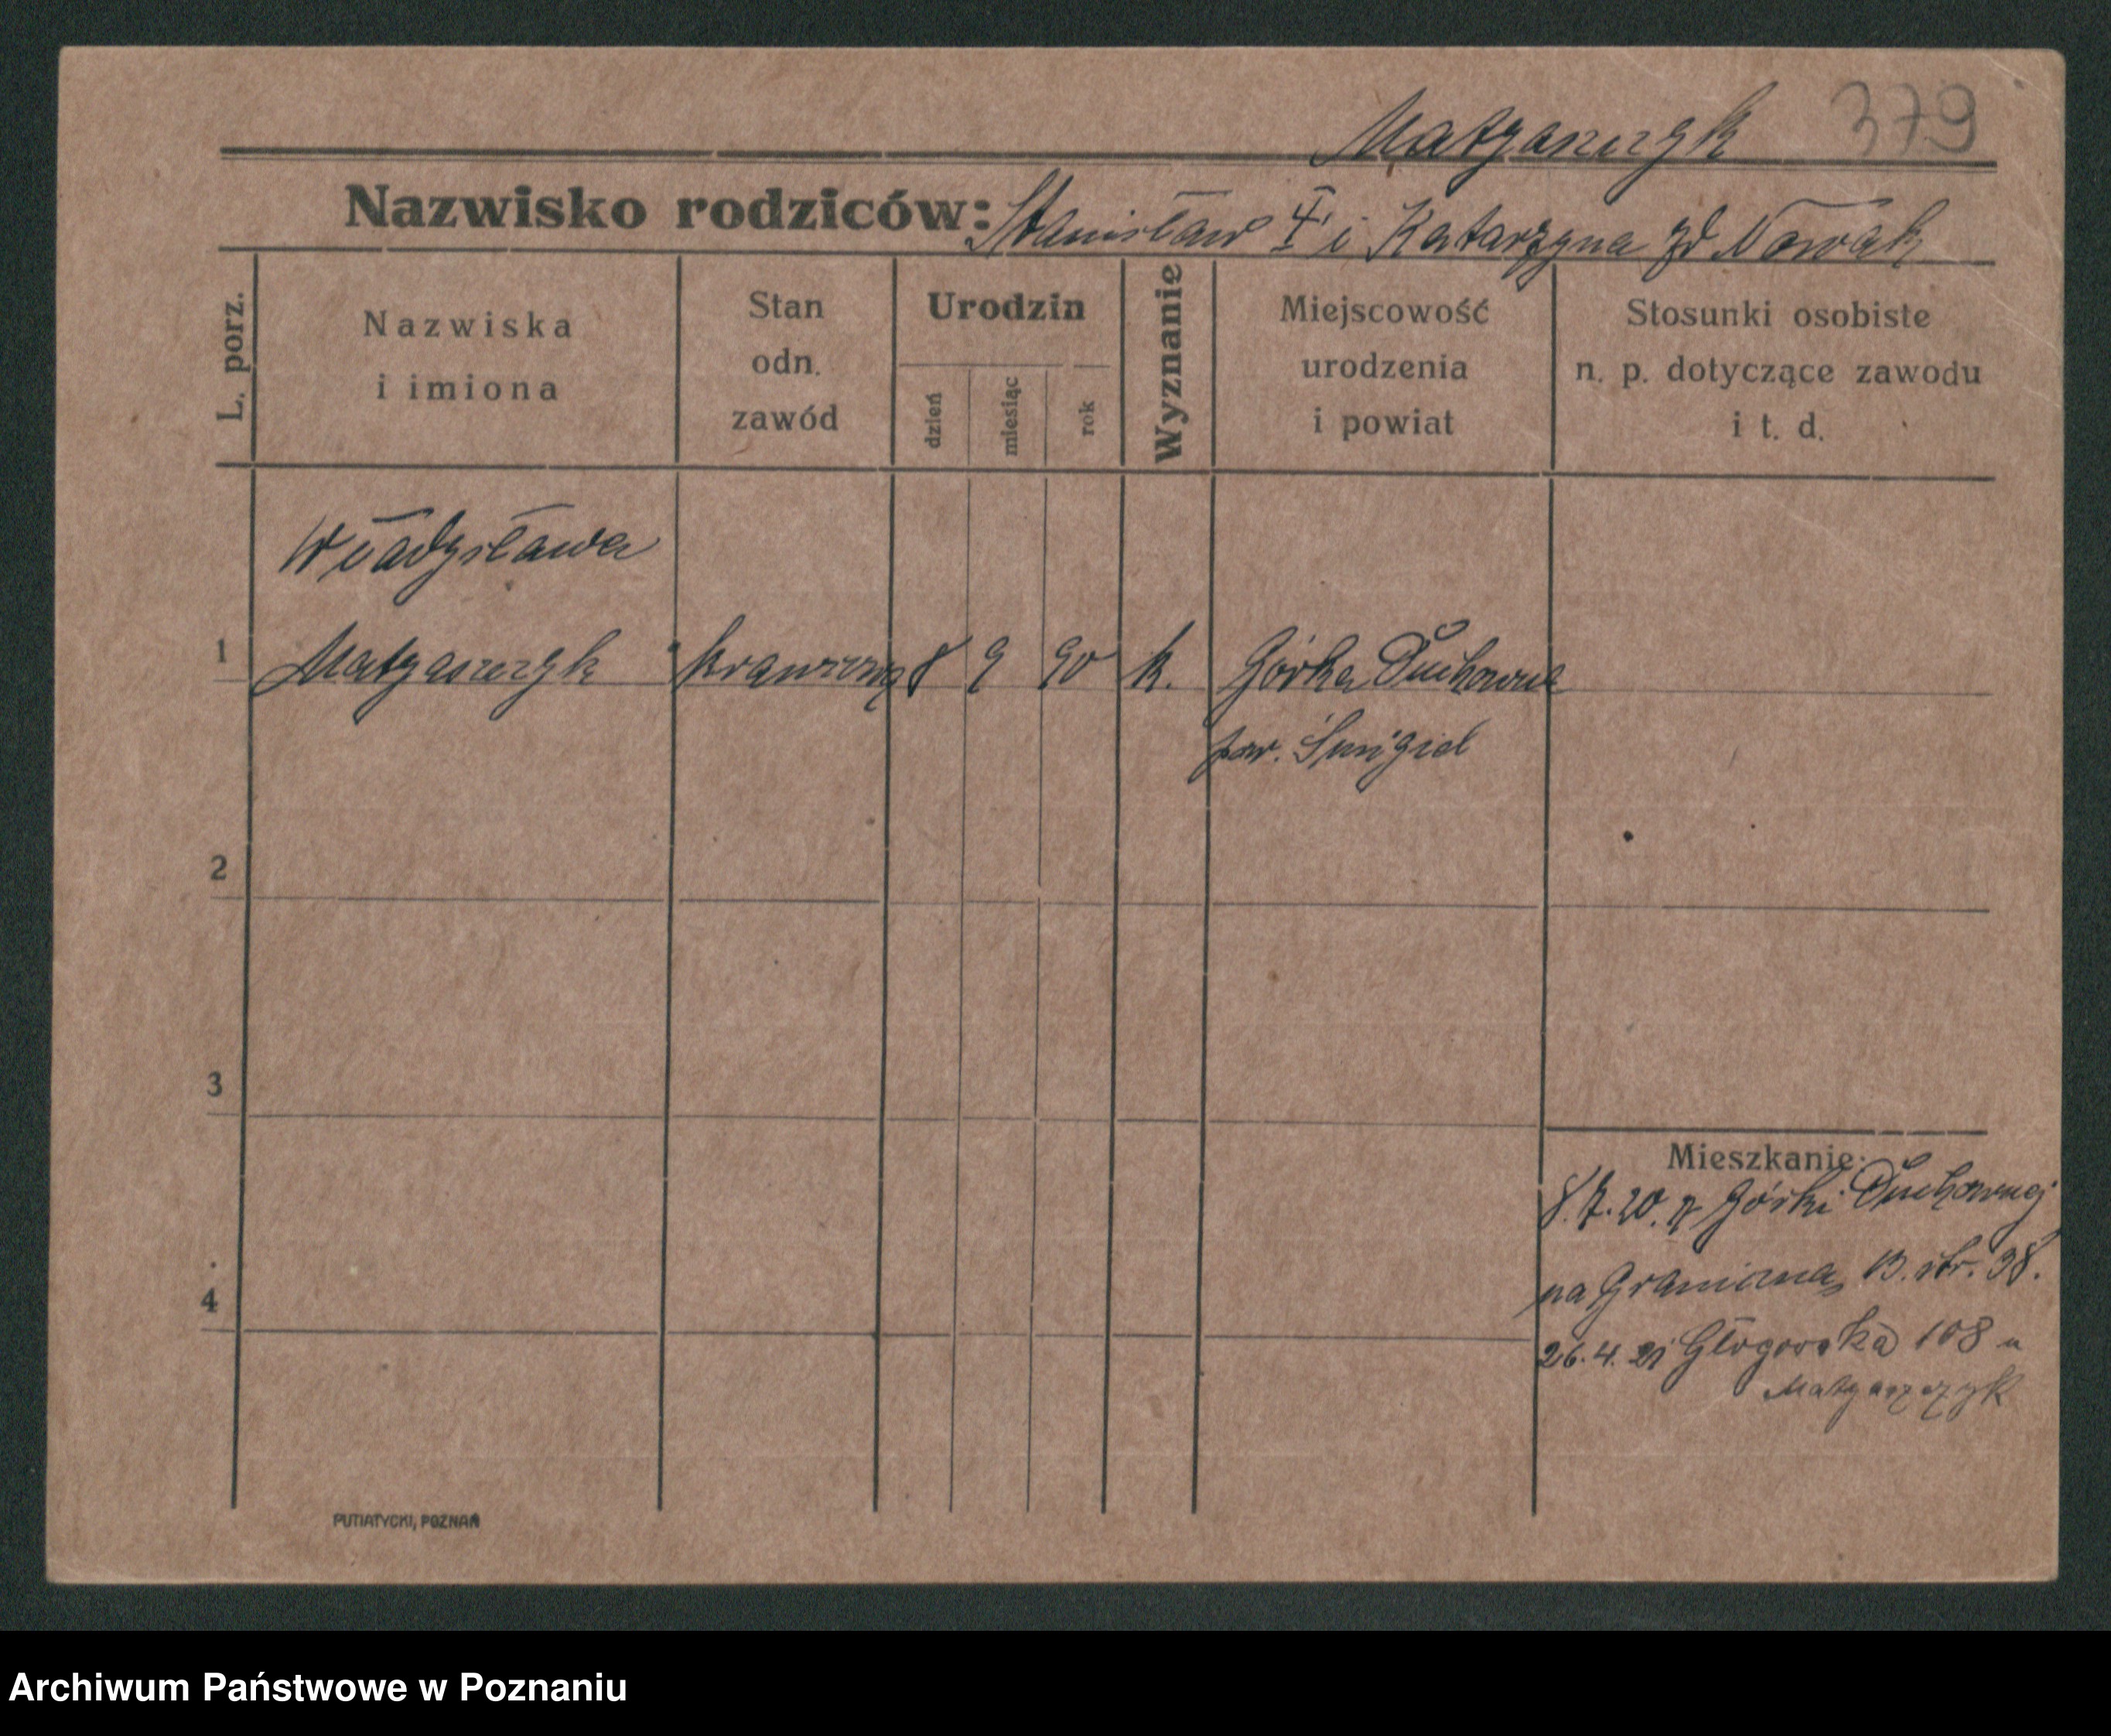 379
Matyaszczyk
Nazwisko rodziców: Stanisław † i Katarzyna zd Nowak
L. porz.
Nazwiska
i imiona
Stan
odn.
zawód
Urodzin
dzień
miesiąc
rok
Wyznanie
Miejscowość
urodzenia
i powiat
Stosunki osobiste
n. p. dotyczące zawodu
i t. d.
Władysława
1 Matyaszczyk krawcowa 8 9 90 k. Górka Duchowna
pow. Śmigiel
2
3
4
Mieszkanie:
8.7.20. z Górki Duchownej
na Graniczna 13. str. 38.
26.4.21 Głogowska 108 u
Matyaszczyk
PUTIATYCKI, POZNAŃ
Archiwum Państwowe w Poznaniu